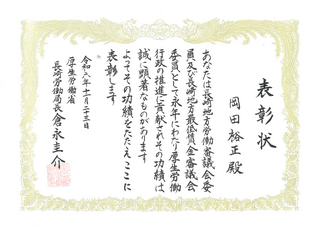 表彰状
岡田裕正殿
あなたは長崎地方労働審議会委
員及び長崎地方最低賃金審議会
委員として永年にわたり厚生労働
行政の推進に貢献されその功績は
誠に顕著なものがあります
よってその功績をたたえここに
表彰します
令和六年十一月二十三日
厚生労働省
長崎労働局長倉永圭介